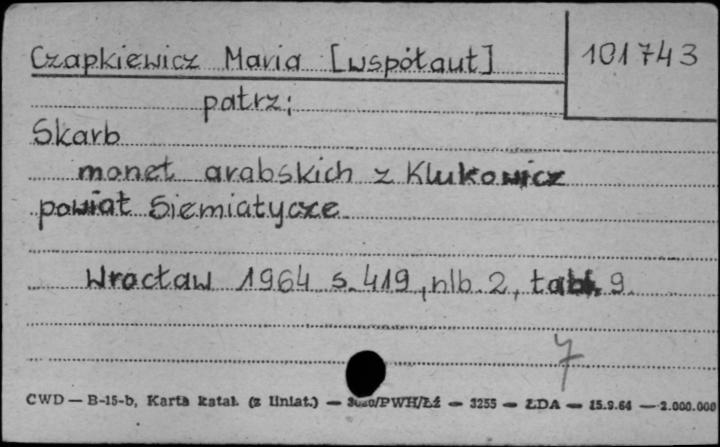 Czapkiewicz Maria [współaut]
101743
patrz:
Skarb
monet arabskich z Klukowicz
powiat Siemiatycze
Wrocław 1964 s. 419, nlb. 2, tabl. 9.
7
CWD — B-15-b, Karta katal. (z liniat.) — /PWH/Łź — 3255 — ŁDA — 15.9.64 — 2.000.000